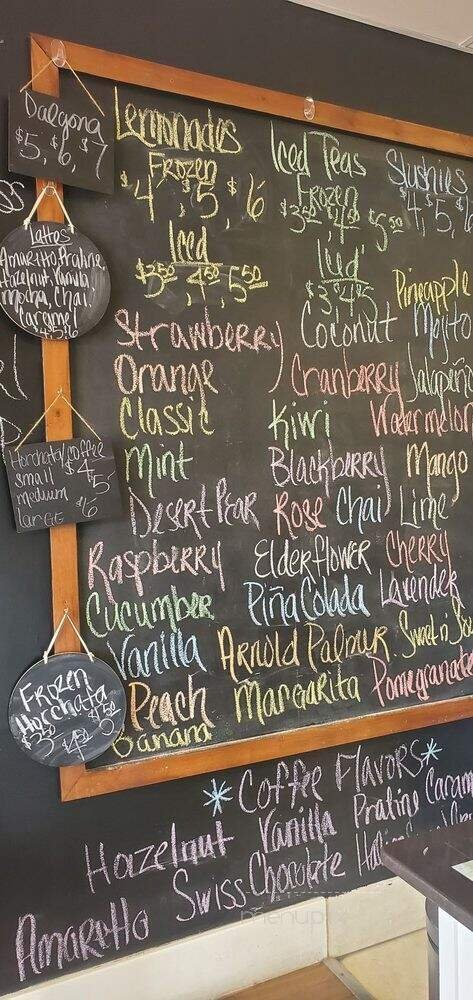 Dalgona
$5, $6, $7
Lattes
Amaretto, Praline,
Hazelnut, Vanilla,
Mocha, Chai,
Caramel
Horchata/coffee
small $4
medium $5
large $6
Frozen
Horchata
$3.50 $4.50 $5.50
Lemonades
Frozen
$4, $5, $6
Iced
$3.50, 4.50, 5.50
Iced Teas
Frozen
$3.50 $4.50 $5.50
Slushies
$4, 5, 6
Pineapple
Strawberry Coconut Mojito
Orange Cranberry Jalapeño
Classic Kiwi Watermelon
Mint Blackberry Mango
Desert Pear Rose Chai Lime
Raspberry Elderflower Cherry
Cucumber Piña Colada Lavender
Vanilla Arnold Palmur Sweet n'
Peach Margarita Pomegranate
Banana
*Coffee Flavors*
Hazelnut Vanilla Praline Caram
Amaretto Swiss Chocolate
menupix